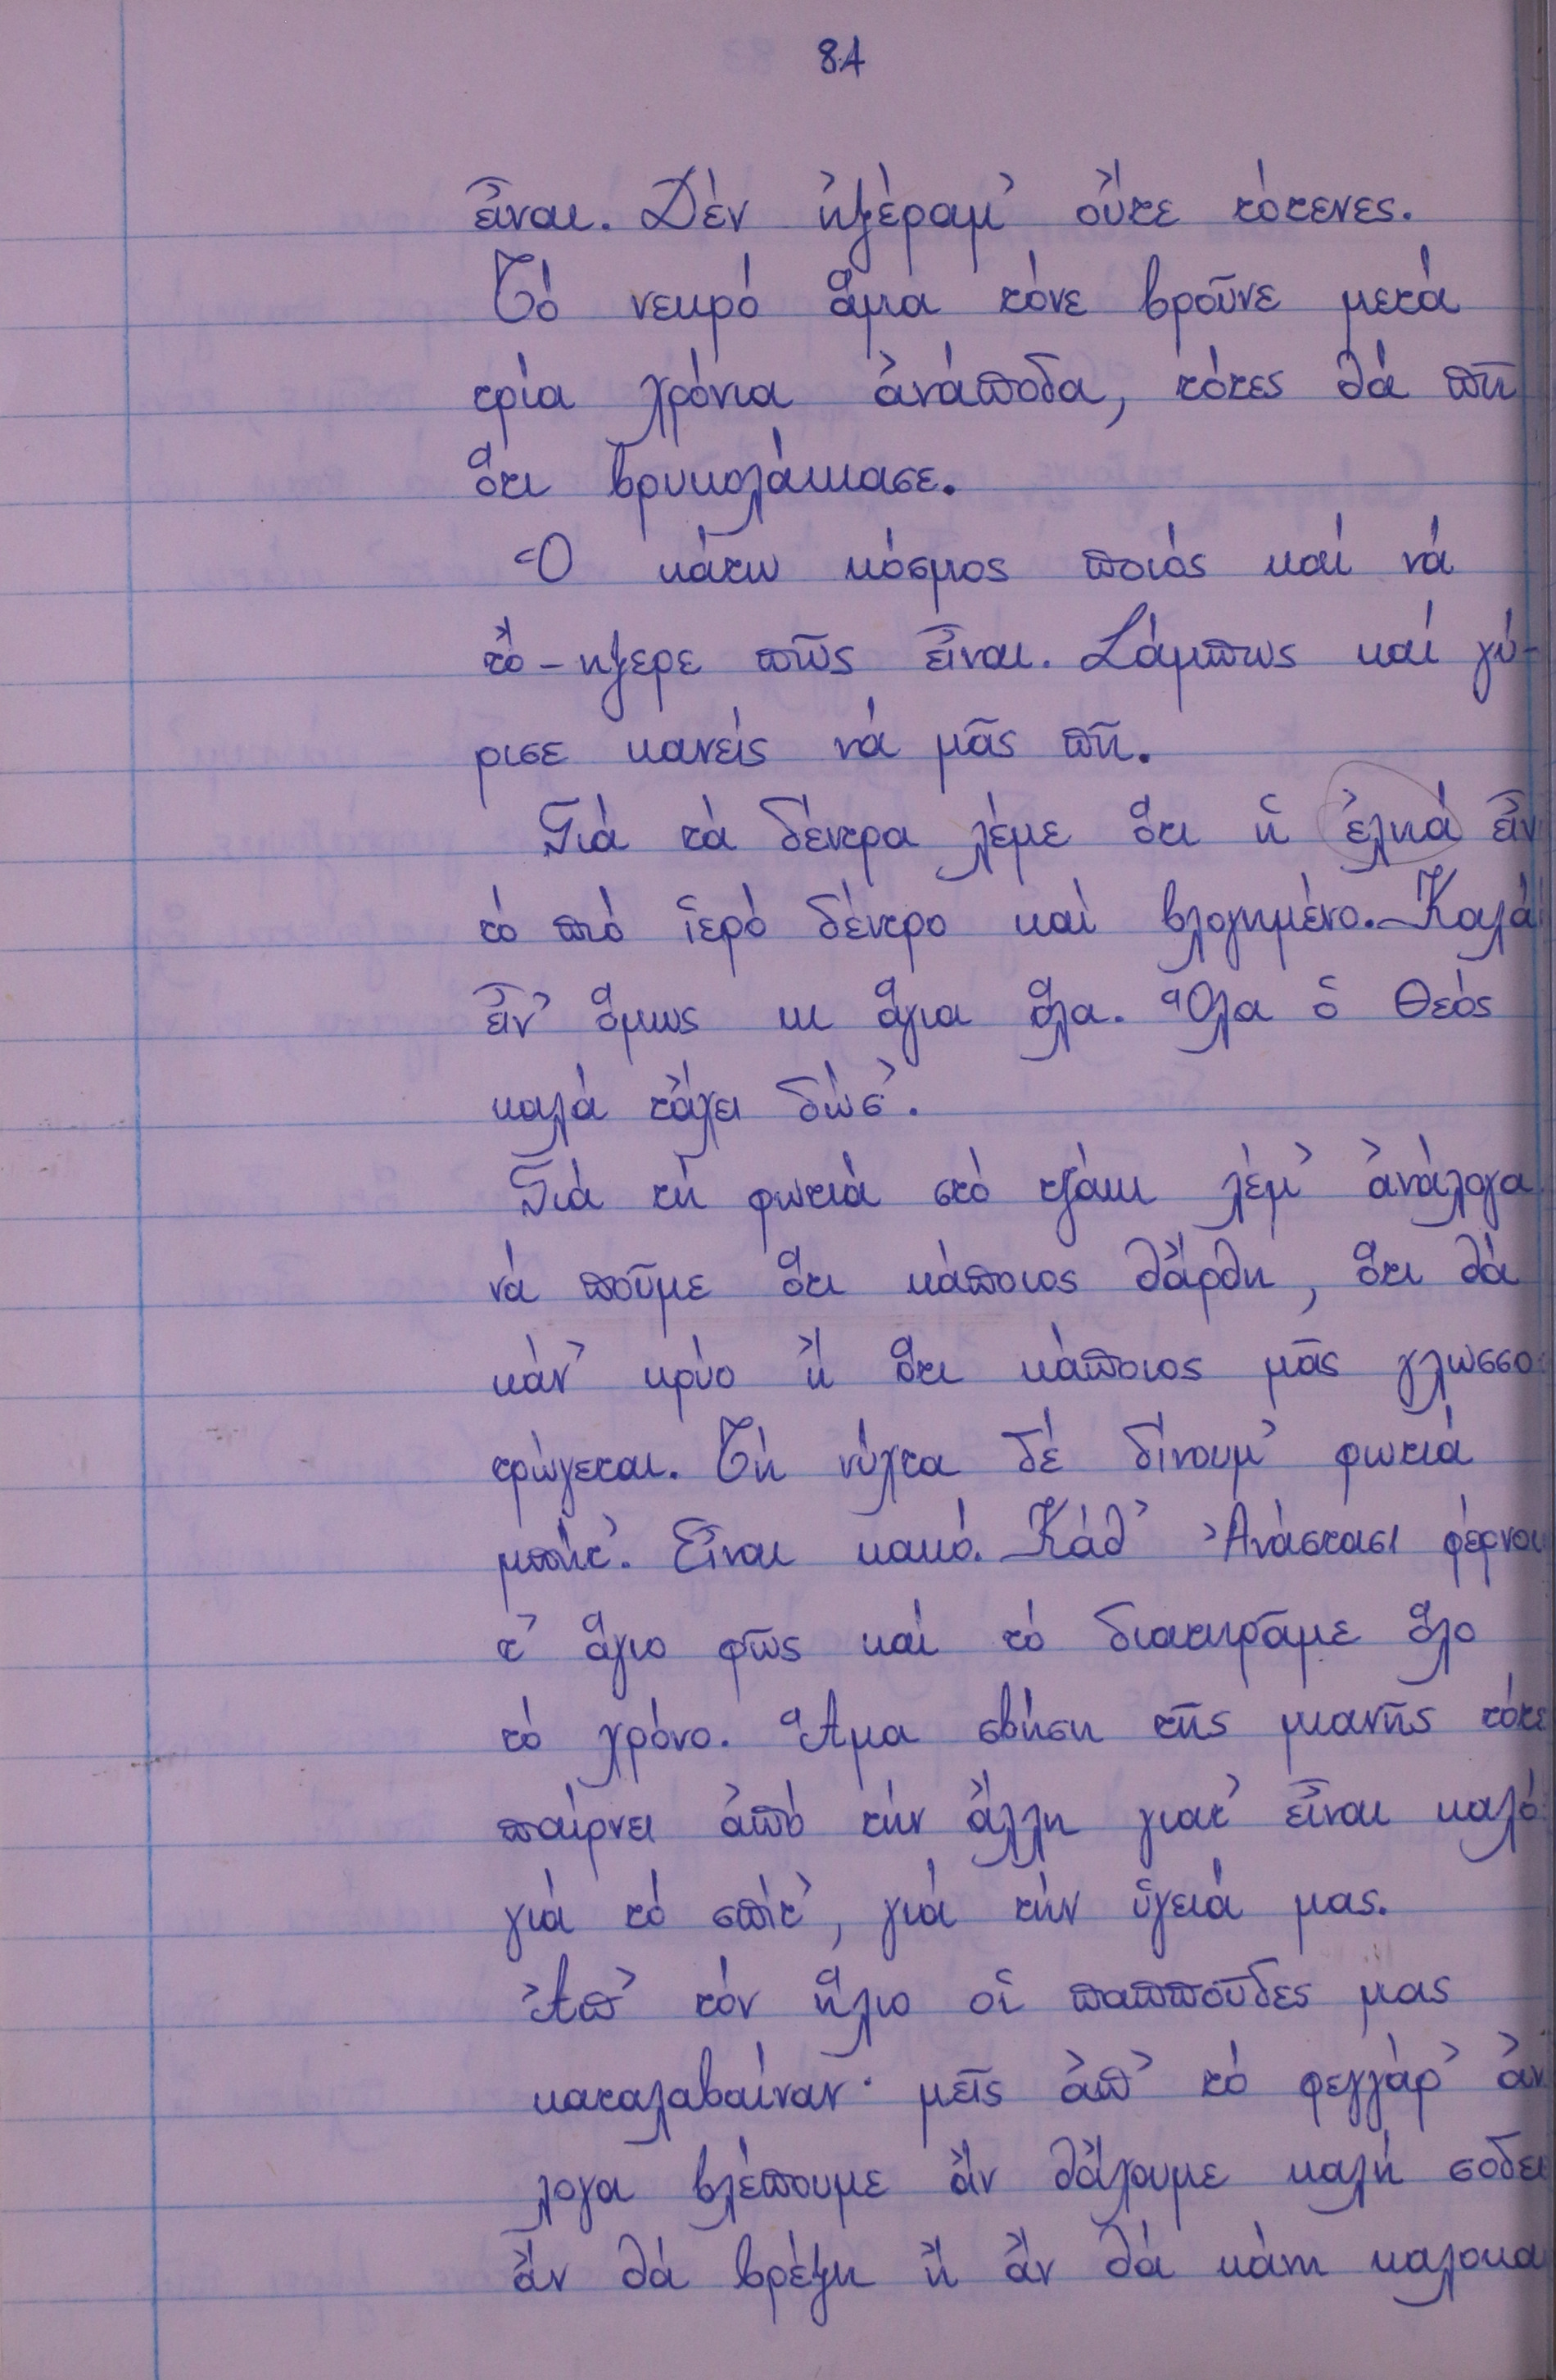 84
εἶναι. Δέν ἠξέραμ' οὔτε τότενες.
Τό νεκρό ἅμα τόνε βροῦνε μετά
τρία χρόνια ἀνάποδα, τότες θά πῆ
ὅτι βρυκολάκιασε.
Ὁ κάτω κόσμος ποιός καί νά
τὄ-ηξερε πῶς εἶναι. Σάμπως καί γύ-
ρισε κανείς νά μᾶς πῆ.
Γιά τά δέντρα λέμε ὅτι ἡ ἐληά εἶν
τό πιό ἱερό δέντρο καί βλογημένο. Καλά
εἶν' ὅμως κι ἅγια ὅλα. Ὅλα ὁ Θεός
καλά τἄχει δώσ'.
Γιά τή φωτιά στό τζάκι λέμ' ἀνάλογα
νά ποῦμε ὅτι κάποιος θἄρθη, ὅτι θά
κάν' κρύο ἤ ὅτι κάποιος μᾶς γλωσσο
τρώγεται. Τή νύχτα δέ δίνουμ' φωτιά
μπήτ'. Εἶναι κακό. Κάθ' Ἀνάστασι φέρνου
τ' ἅγιο φῶς καί τό διατηρᾶμε ὅλο
τό χρόνο. Ἅμα σβήση τῆς μιανῆς τότε
παίρνει ἀπό τήν ἄλλη γιατ' εἶναι καλό
γιά τό σπίτ', γιά τήν ὑγειά μας.
Ἀπ' τόν ἥλιο οἱ παπποῦδες μας
καταλαβαίναν· μεῖς ἀπ' τό φεγγάρ' ἀν
λογα βλέπουμε ἄν θἄχουμε καλή σοδει
ἄν θά βρέξη ἤ ἄν θά κάνη καλοκα